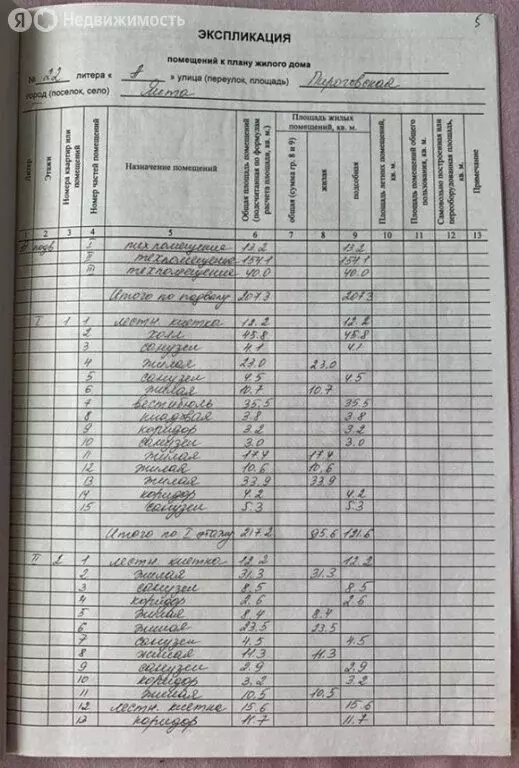 Я Недвижимость
5
ЭКСПЛИКАЦИЯ
помещений к плану жилого дома
№ 22 литера « А » улица (переулок, площадь) Пироговская
город (поселок, село) Ялта
Литер
Этажи
Номера квартир или помещений
Номер частей помещений
Назначение помещений
Общая площадь помещений (подсчитанная по формулам расчета площади, кв. м.)
Площадь жилых помещений, кв. м.
общая (сумма гр. 8 и 9)
жилая
подсобная
Площадь летних помещений, кв. м.
Площадь помещений общего пользования, кв. м.
Самовольно построенная или переоборудованная площадь, кв. м
Примечание
1 2 3 4 5 6 7 8 9 10 11 12 13
подв I техпомещение 13.2 13.2
II техпомещение 154.1 154.1
III техпомещение 40.0 40.0
Итого по подвалу 207.3 207.3
I 1 1 лестн. клетка 12.2 12.2
2 холл 45.8 45.8
3 санузел 4.1 4.1
4 жилая 23.0 23.0
5 санузел 4.5 4.5
6 жилая 10.7 10.7
7 вестибюль 35.5 35.5
8 кладовая 3.8 3.8
9 коридор 3.2 3.2
10 санузел 3.0 3.0
11 жилая 17.4 17.4
12 жилая 10.6 10.6
13 жилая 33.9 33.9
14 коридор 4.2 4.2
15 санузел 5.3 5.3
Итого по I этажу 217.2 95.6 121.6
II 2 1 лестн. клетка 12.2 12.2
2 жилая 31.3 31.3
3 санузел 8.5 8.5
4 коридор 2.6 2.6
5 жилая 8.4 8.4
6 жилая 23.5 23.5
7 санузел 4.5 4.5
8 жилая 11.3 11.3
9 санузел 2.9 2.9
10 коридор 3.2 3.2
11 жилая 10.5 10.5
12 лестн. клетка 15.6 15.6
13 коридор 11.7 11.7